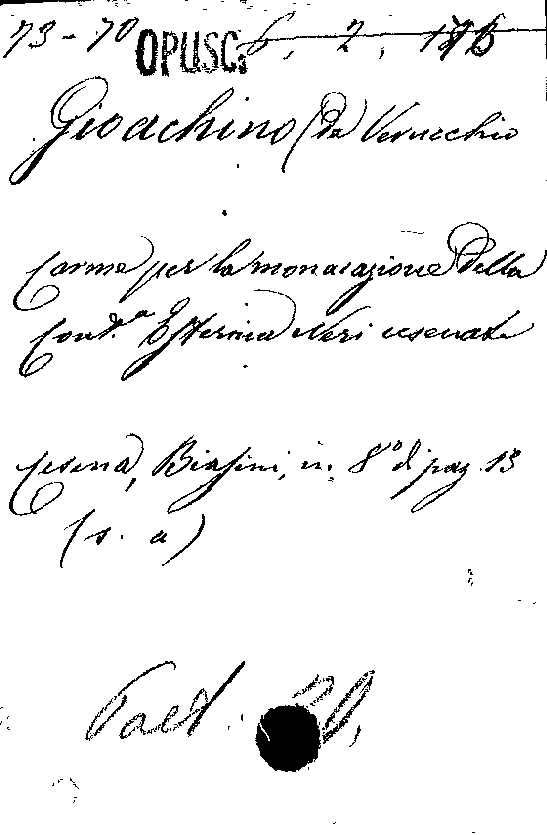 73-70 OPUSC. 6, 2,
Gioachino (Da Verucchio
Carme per la monacazione Della
Cont.a Esterina Neri cesenate
Cesena, Biasini, in 8° di pag. 13
(s. a)